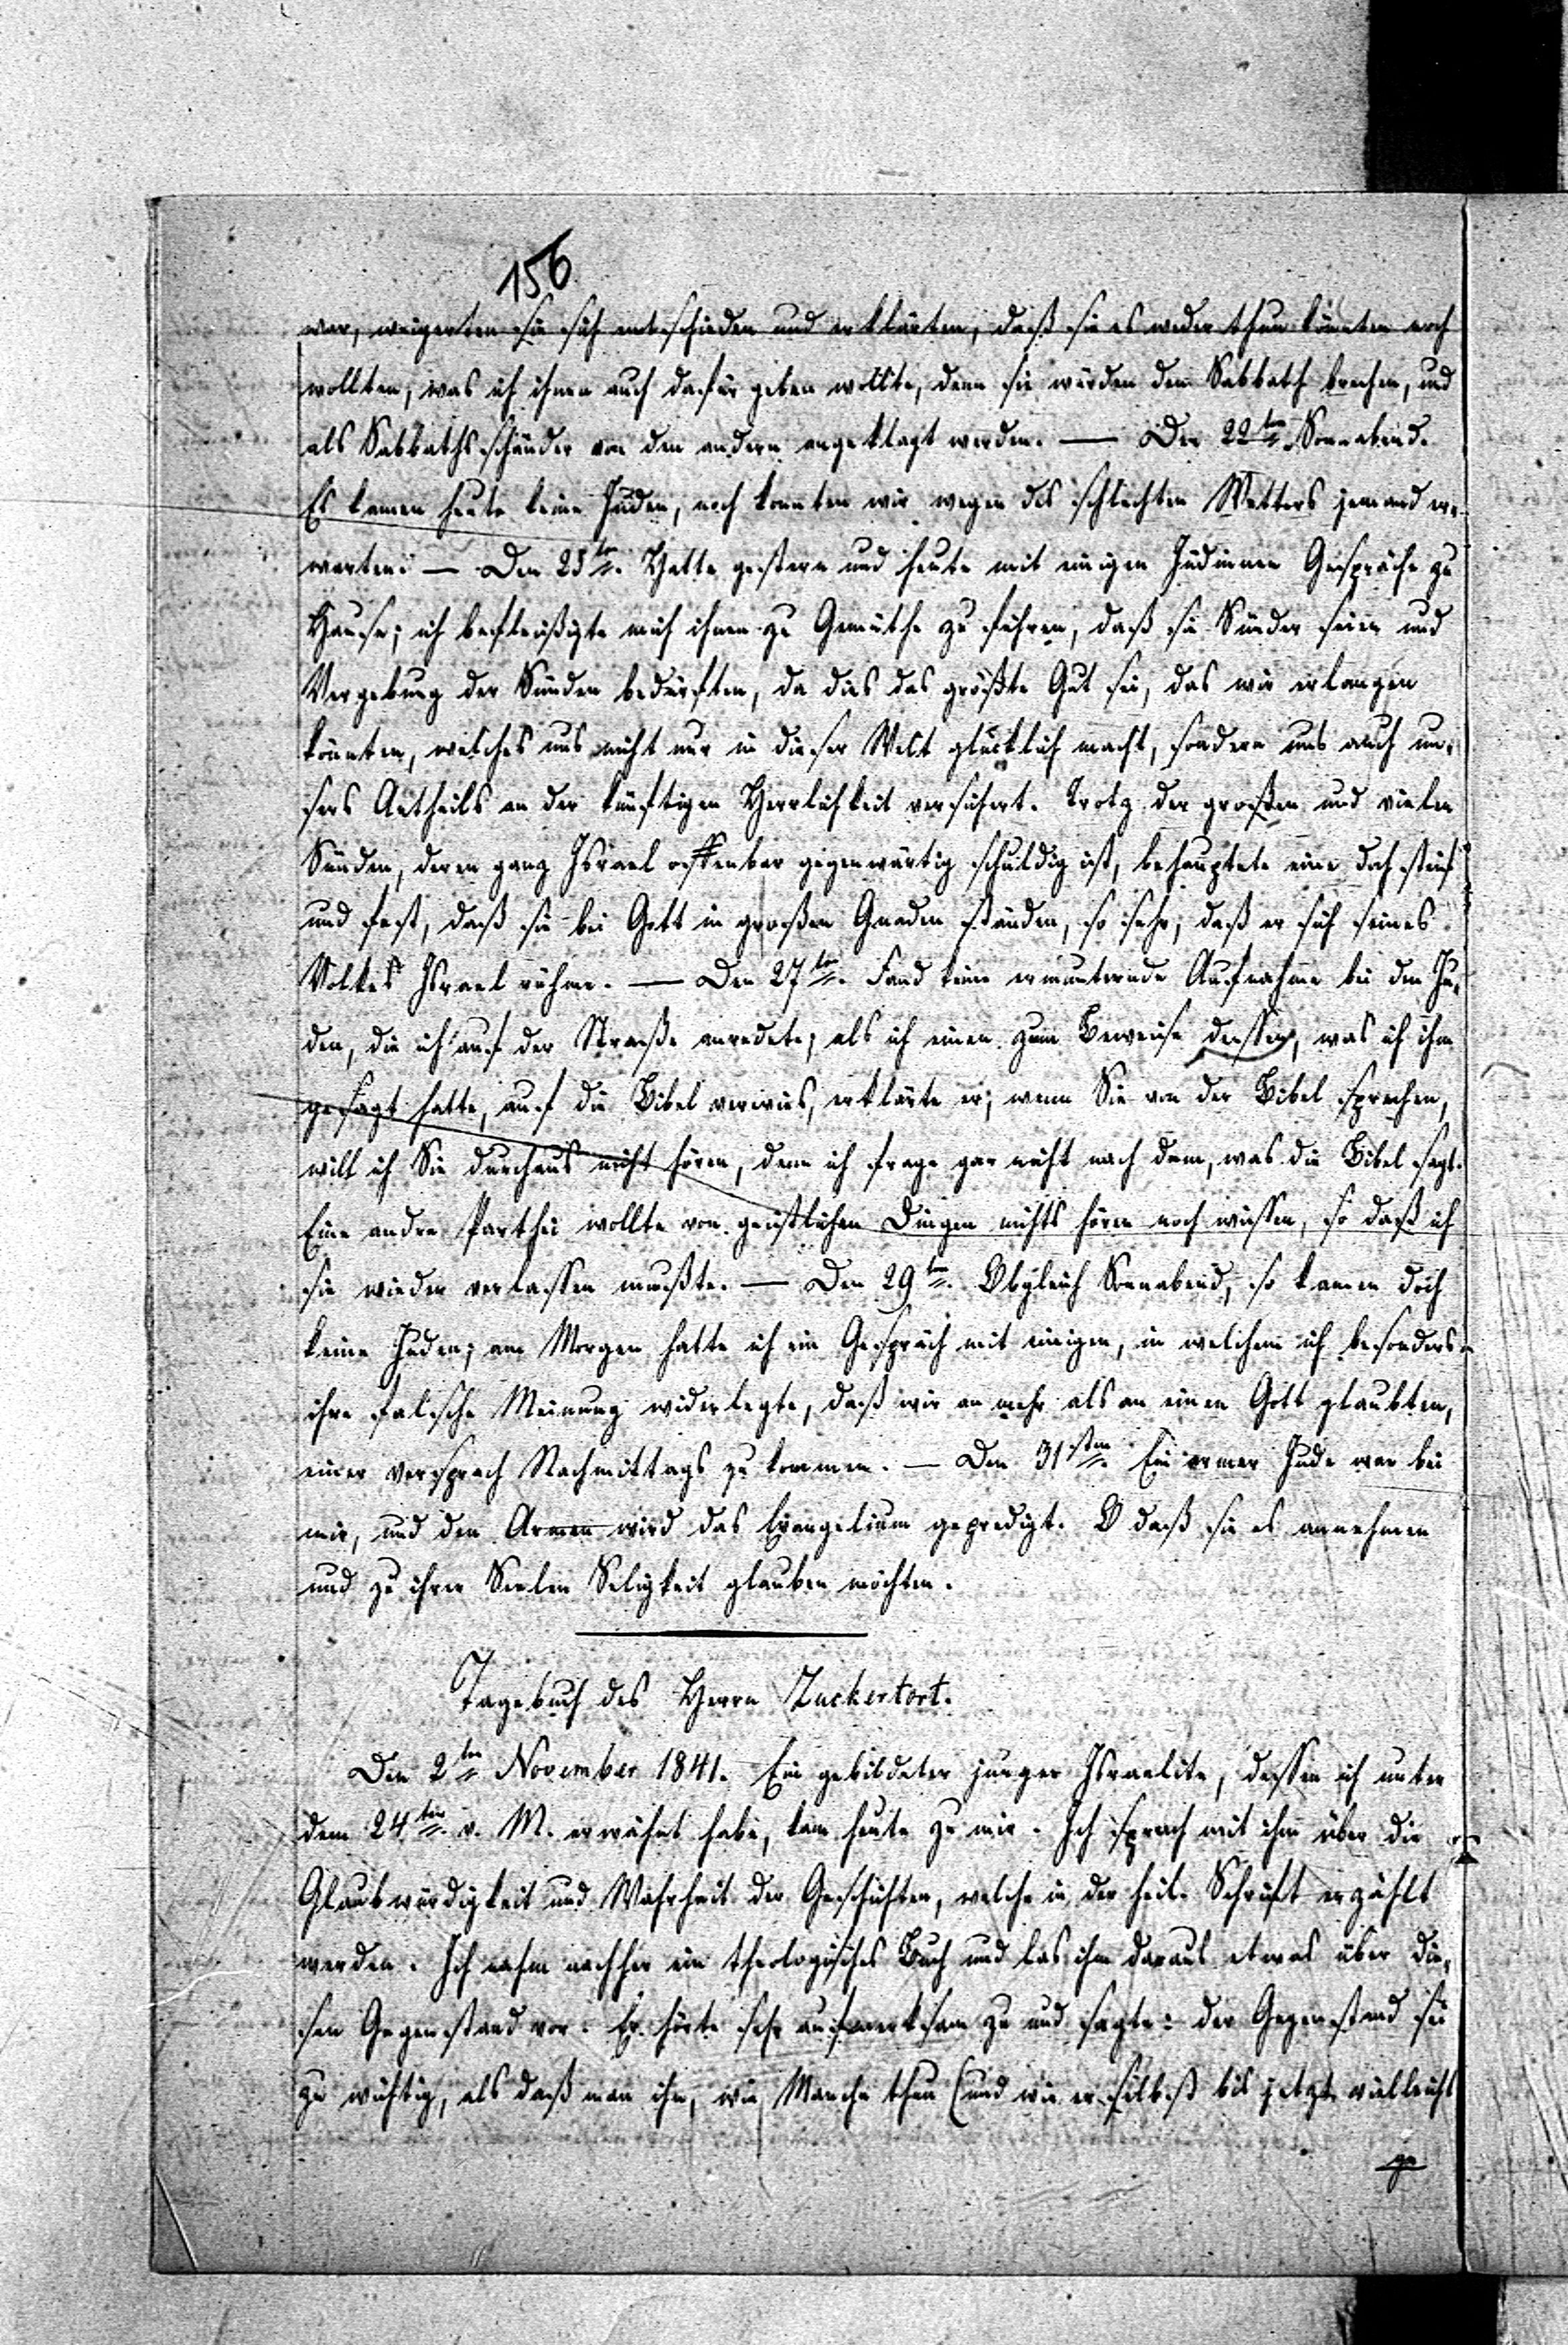 156
war, weigerten sie sich entschieden und erklärten, daß sie es weder thun könnten noch
wollten, was ich ihnen auch dafür geben wollte, denn sie würden den Sabbath brechen, und
als Sabbathsschänder von den andern angeklagt werden. — Den 22ten. Sonnabend.
Es kamen heute keine Juden, noch konnten wir wegen des schlechten Wetters jemand er-
warten. — Den 25ten. Hatte gestern und heute mit einigen Jüdinnen Gespräche zu
Hause; ich befleißigte mich ihnen zu Gemüthe zu führen, daß sie Sünder seien und
Vergebung der Sünden bedürften, da dies das größte Gut sei, das wir erlangen
könnten, welches uns nicht nur in dieser Welt glücklich macht, sondern uns auch un-
sers Antheils an der künftigen Herrlichkeit versichert. Trotz der großen und vielen
Sünden, deren ganz Israel offenbar gegenwärtig schuldig ist, behauptete eine doch steif
und fest, daß sie bei Gott in großen Gnaden ständen, so sehr, daß er sich seines
Volkes Israel rühme. — Den 27ten. Fand keine ermunternde Aufnahme bei den Ju-
den, die ich auf der Straße anredete; als ich einen zum Beweise dessen, was ich ihm
gesagt hatte, auf die Bibel verwies, erklärte er; wenn Sie von der Bibel sprechen,
will ich Sie durchaus nicht hören, denn ich frage gar nicht nach dem, was die Bibel sagt.
Eine andre Parthei wollte von geistlichen Dingen nichts hören noch wissen, so daß ich
sie wieder verlassen mußte. — Den 29ten. Obgleich Sonnabend, so kamen doch
keine Juden; am Morgen hatte ich ein Gespräch mit einigen, in welchem ich besonders
ihre falsche Meinung widerlegte, daß wir an mehr als an einen Gott glaubten,
einer versprach Nachmittags zu kommen. — Den 31sten. Ein armer Jude war bei
mir, und den Armen wird das Evangelium gepredigt. O daß sie es annehmen
und zu ihrer Seelen Seligkeit glauben möchten.
Tagebuch des Herrn Zuckertort.
Den 2ten November 1841. Ein gebildeter junger Israelite, dessen ich unter
dem 24ten. v. M. erwähnt habe, kam heute zu mir. Ich sprach mit ihm über die
Glaubwürdigkeit und Wahrheit der Geschichten, welche in der heil. Schrift erzählt
werden. Ich nahm nachher ein theologisches Buch und las ihm daraus etwas über die-
sen Gegenstand vor. Er hörte sehr aufmerksam zu und sagte: der Gegenstand sei
zu wichtig, als daß man ihn, wie Manche thun (und wie er selbst bis jetzt vielleicht
ge